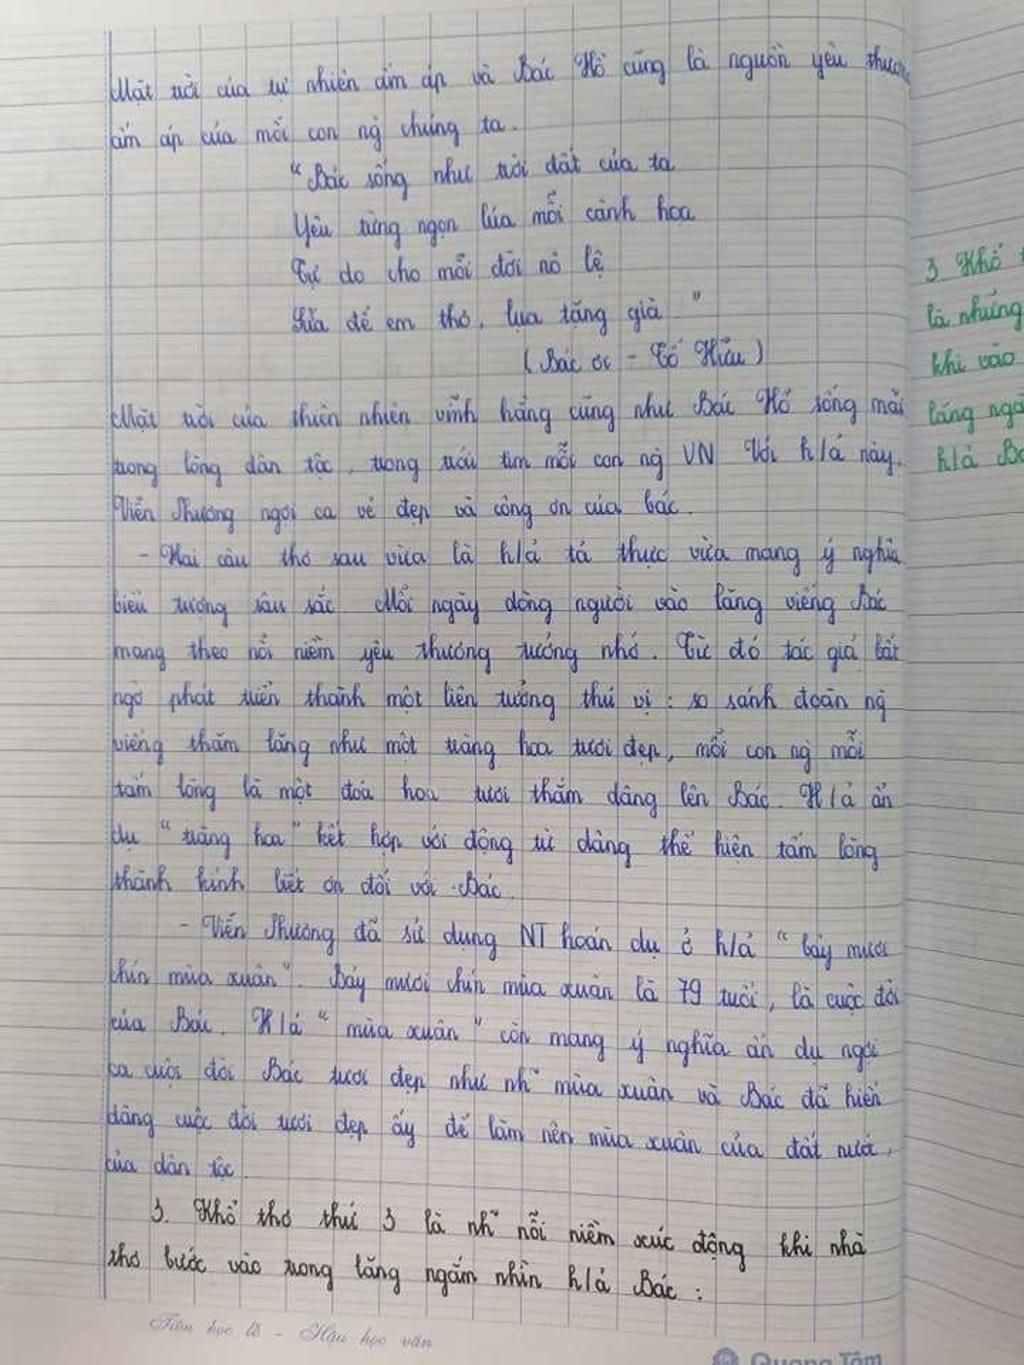 Mặt trời của tự nhiên ấm áp và Bác Hồ cũng là nguồn yêu thương
ấm áp của mỗi con ng chúng ta.
"Bác sống như trời đất của ta
Yêu từng ngọn lúa mỗi cành hoa
Tự do cho mỗi đời nô lệ
Sữa để em thơ, lụa tặng già"
(Bác ơi - Tố Hữu)
Mặt trời của thiên nhiên vĩnh hằng cũng như Bác Hồ sống mãi
trong lòng dân tộc, trong trái tim mỗi con ng VN Với h/á này.
Viễn Phương ngợi ca vẻ đẹp và công ơn của bác.
- Hai câu thơ sau vừa là h/á tả thực vừa mang ý nghĩa
biểu tượng sâu sắc Mỗi ngày dòng người vào lăng viếng Bác
mang theo nỗi niềm yêu thương tưởng nhớ. Từ đó tác giả bất
ngờ phát triển thành một liên tưởng thú vị: so sánh đoàn ng
viếng thăm lăng như một tràng hoa tươi đẹp, mỗi con ng mỗi
tấm lòng là một đóa hoa tươi thắm dâng lên Bác. H/á ẩn
dụ "tràng hoa" kết hợp với động từ dâng thể hiện tấm lòng
thành kính biết ơn đối với Bác.
- Viễn Phương đã sử dụng NT hoán dụ ở h/á "bảy mươi
chín mùa xuân". Bảy mươi chín mùa xuân là 79 tuổi, là cuộc đời
của Bác. H/á "mùa xuân" còn mang ý nghĩa ẩn dụ ngợi
ca cuộc đời Bác tươi đẹp như nh~ mùa xuân và Bác đã hiến
dâng cuộc đời tươi đẹp ấy để làm nên mùa xuân của đất nước,
của dân tộc
3. Khổ thơ thứ 3 là nh~ nỗi niềm xúc động khi nhà
thơ bước vào trong lăng ngắm nhìn h/á Bác:
Tiên học lễ - Hậu học văn
Quang Tâm
3 Khổ
là những
khi vào
lăng ngắ
h/á Bá